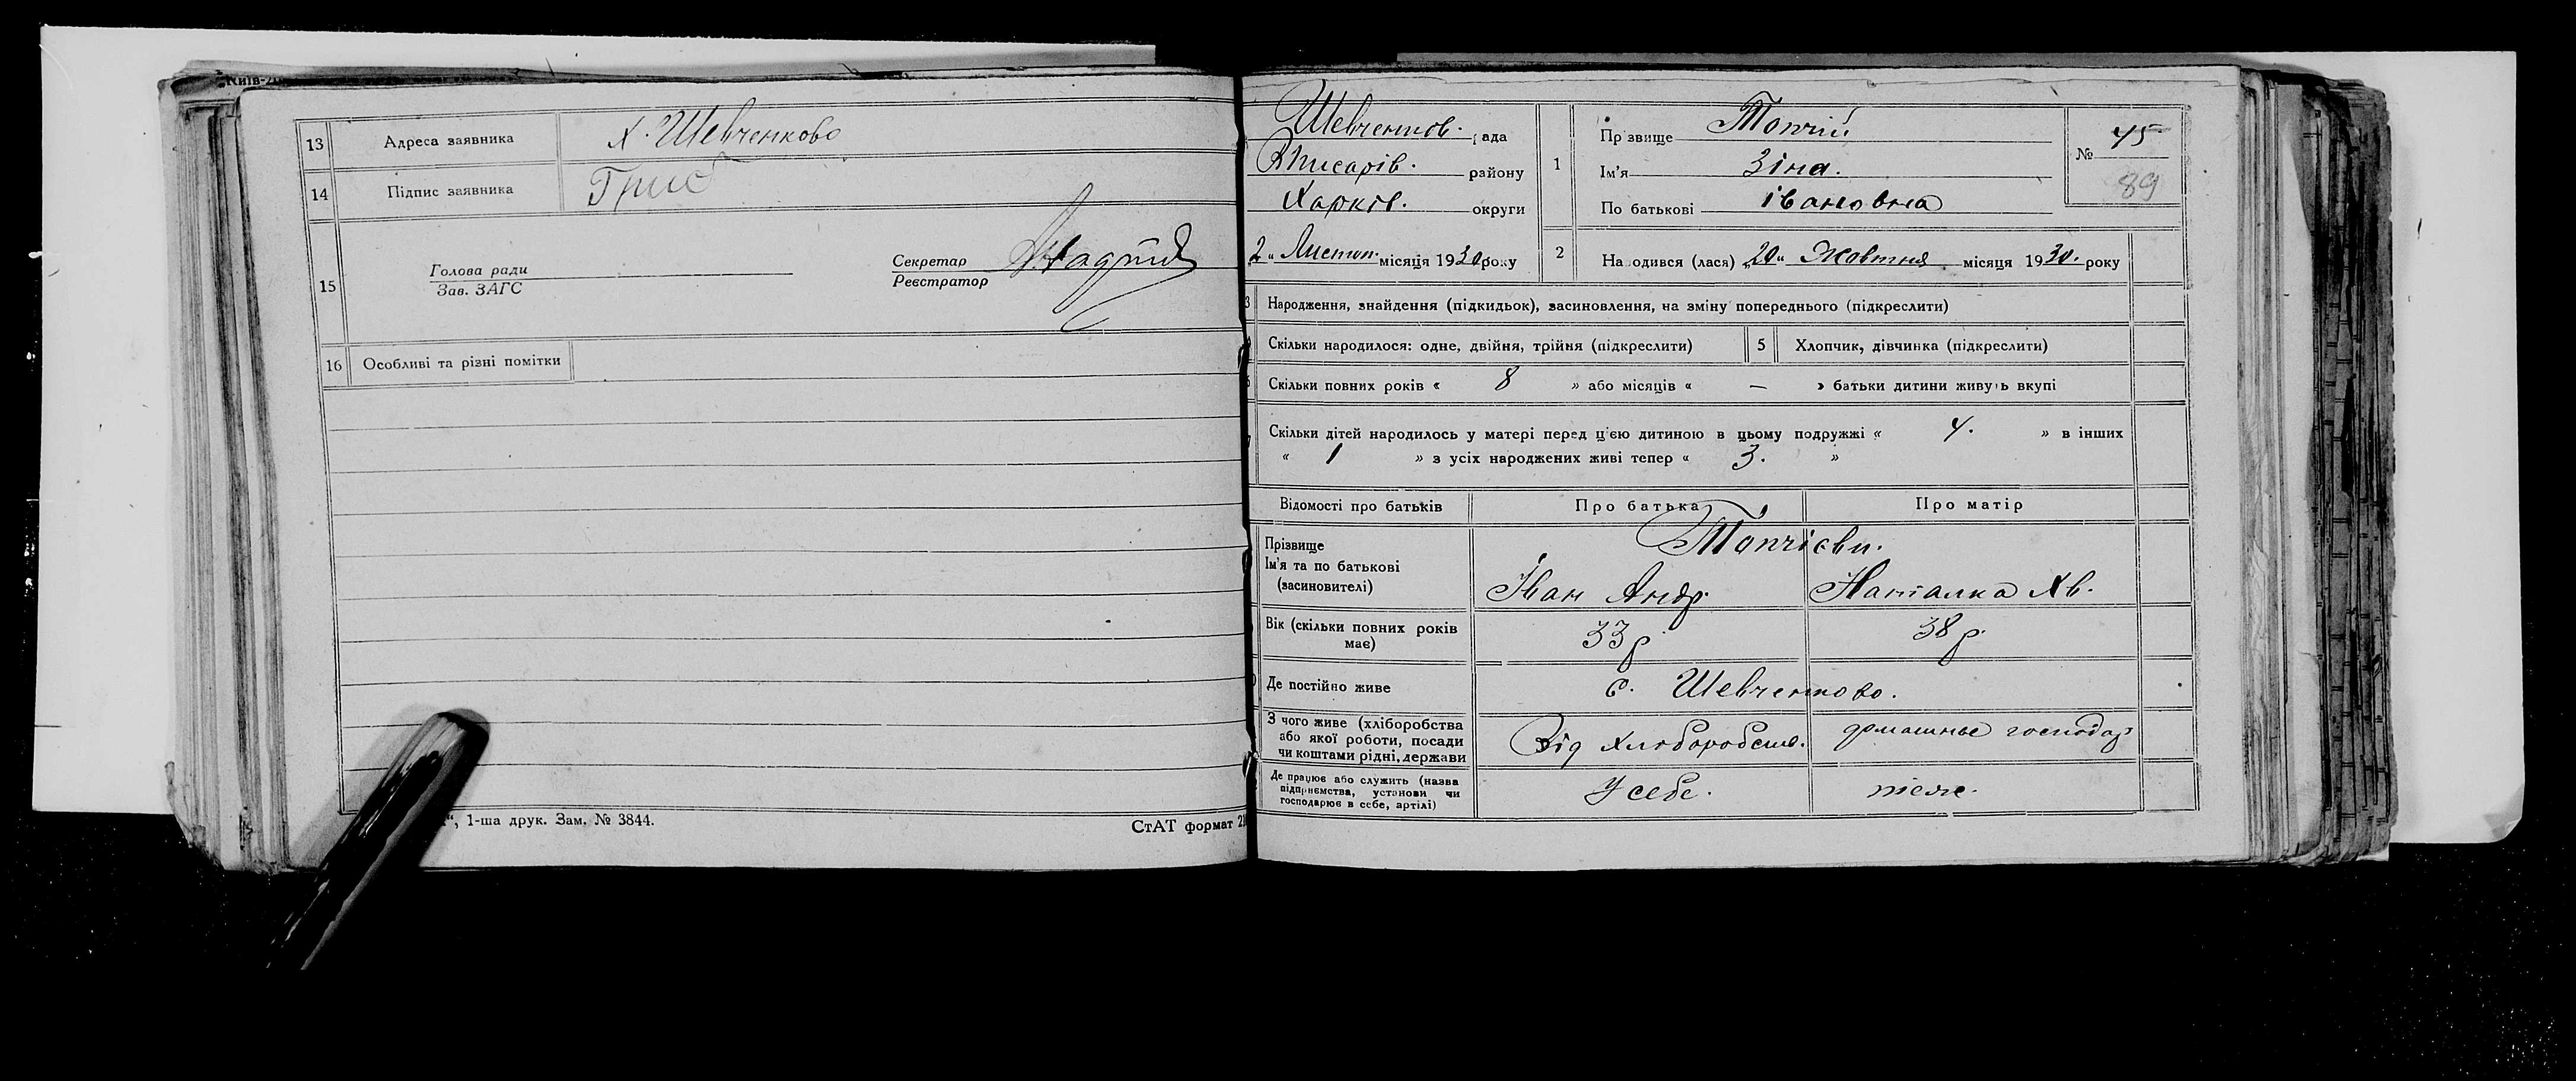 Київ-
13 Адреса заявника х. Шевченково
14 Підпис заявника Гриб
15 Голова ради
Зав. ЗАГС
Секретар
Реєстратор
16 Особливі та різні помітки
“, 1-ша друк. Зам. № 3844.
СтАТ формат 2
Шевченков. рада
Вписарів. району
Харків. округи
2 „ Листоп. місяця 1930 року
1 Пр звище Топчій
Ім'я Зіна.
По батькові івановна
№ 45
89
2 На одився (лася) „20“ Жовтня місяця 1930. року
3 Народження, знайдення (підкидьок), засиновлення, на зміну попереднього (підкреслити)
Скільки народилося: одне, двійня, трійня (підкреслити) 5 Хлопчик, дівчинка (підкреслити)
Скільки повних років « 8 » або місяців « — » батьки дитини живуть вкупі
Скільки дітей народилось у матері перед ц'єю дитиною в цьому подружжі « 4. » в інших
« 1 » з усіх народжених живі тепер « 3. »
Відомості про батьків Про батька Про матір
Прізвище Топчієви.
Ім'я та по батькові
(засиновителі) Іван Андр. Наталка Хв.
Вік (скільки повних років
має) 33 р. 38 р.
Де постійно живе с. Шевченково.
З чого живе (хліборобства
або якої роботи, посади
чи коштами рідні, держави Від Хлібороб домашнє господар
Де працює або служить (назва
підприємства, установи чи
господарює в себе, артілі) У себе. теж.